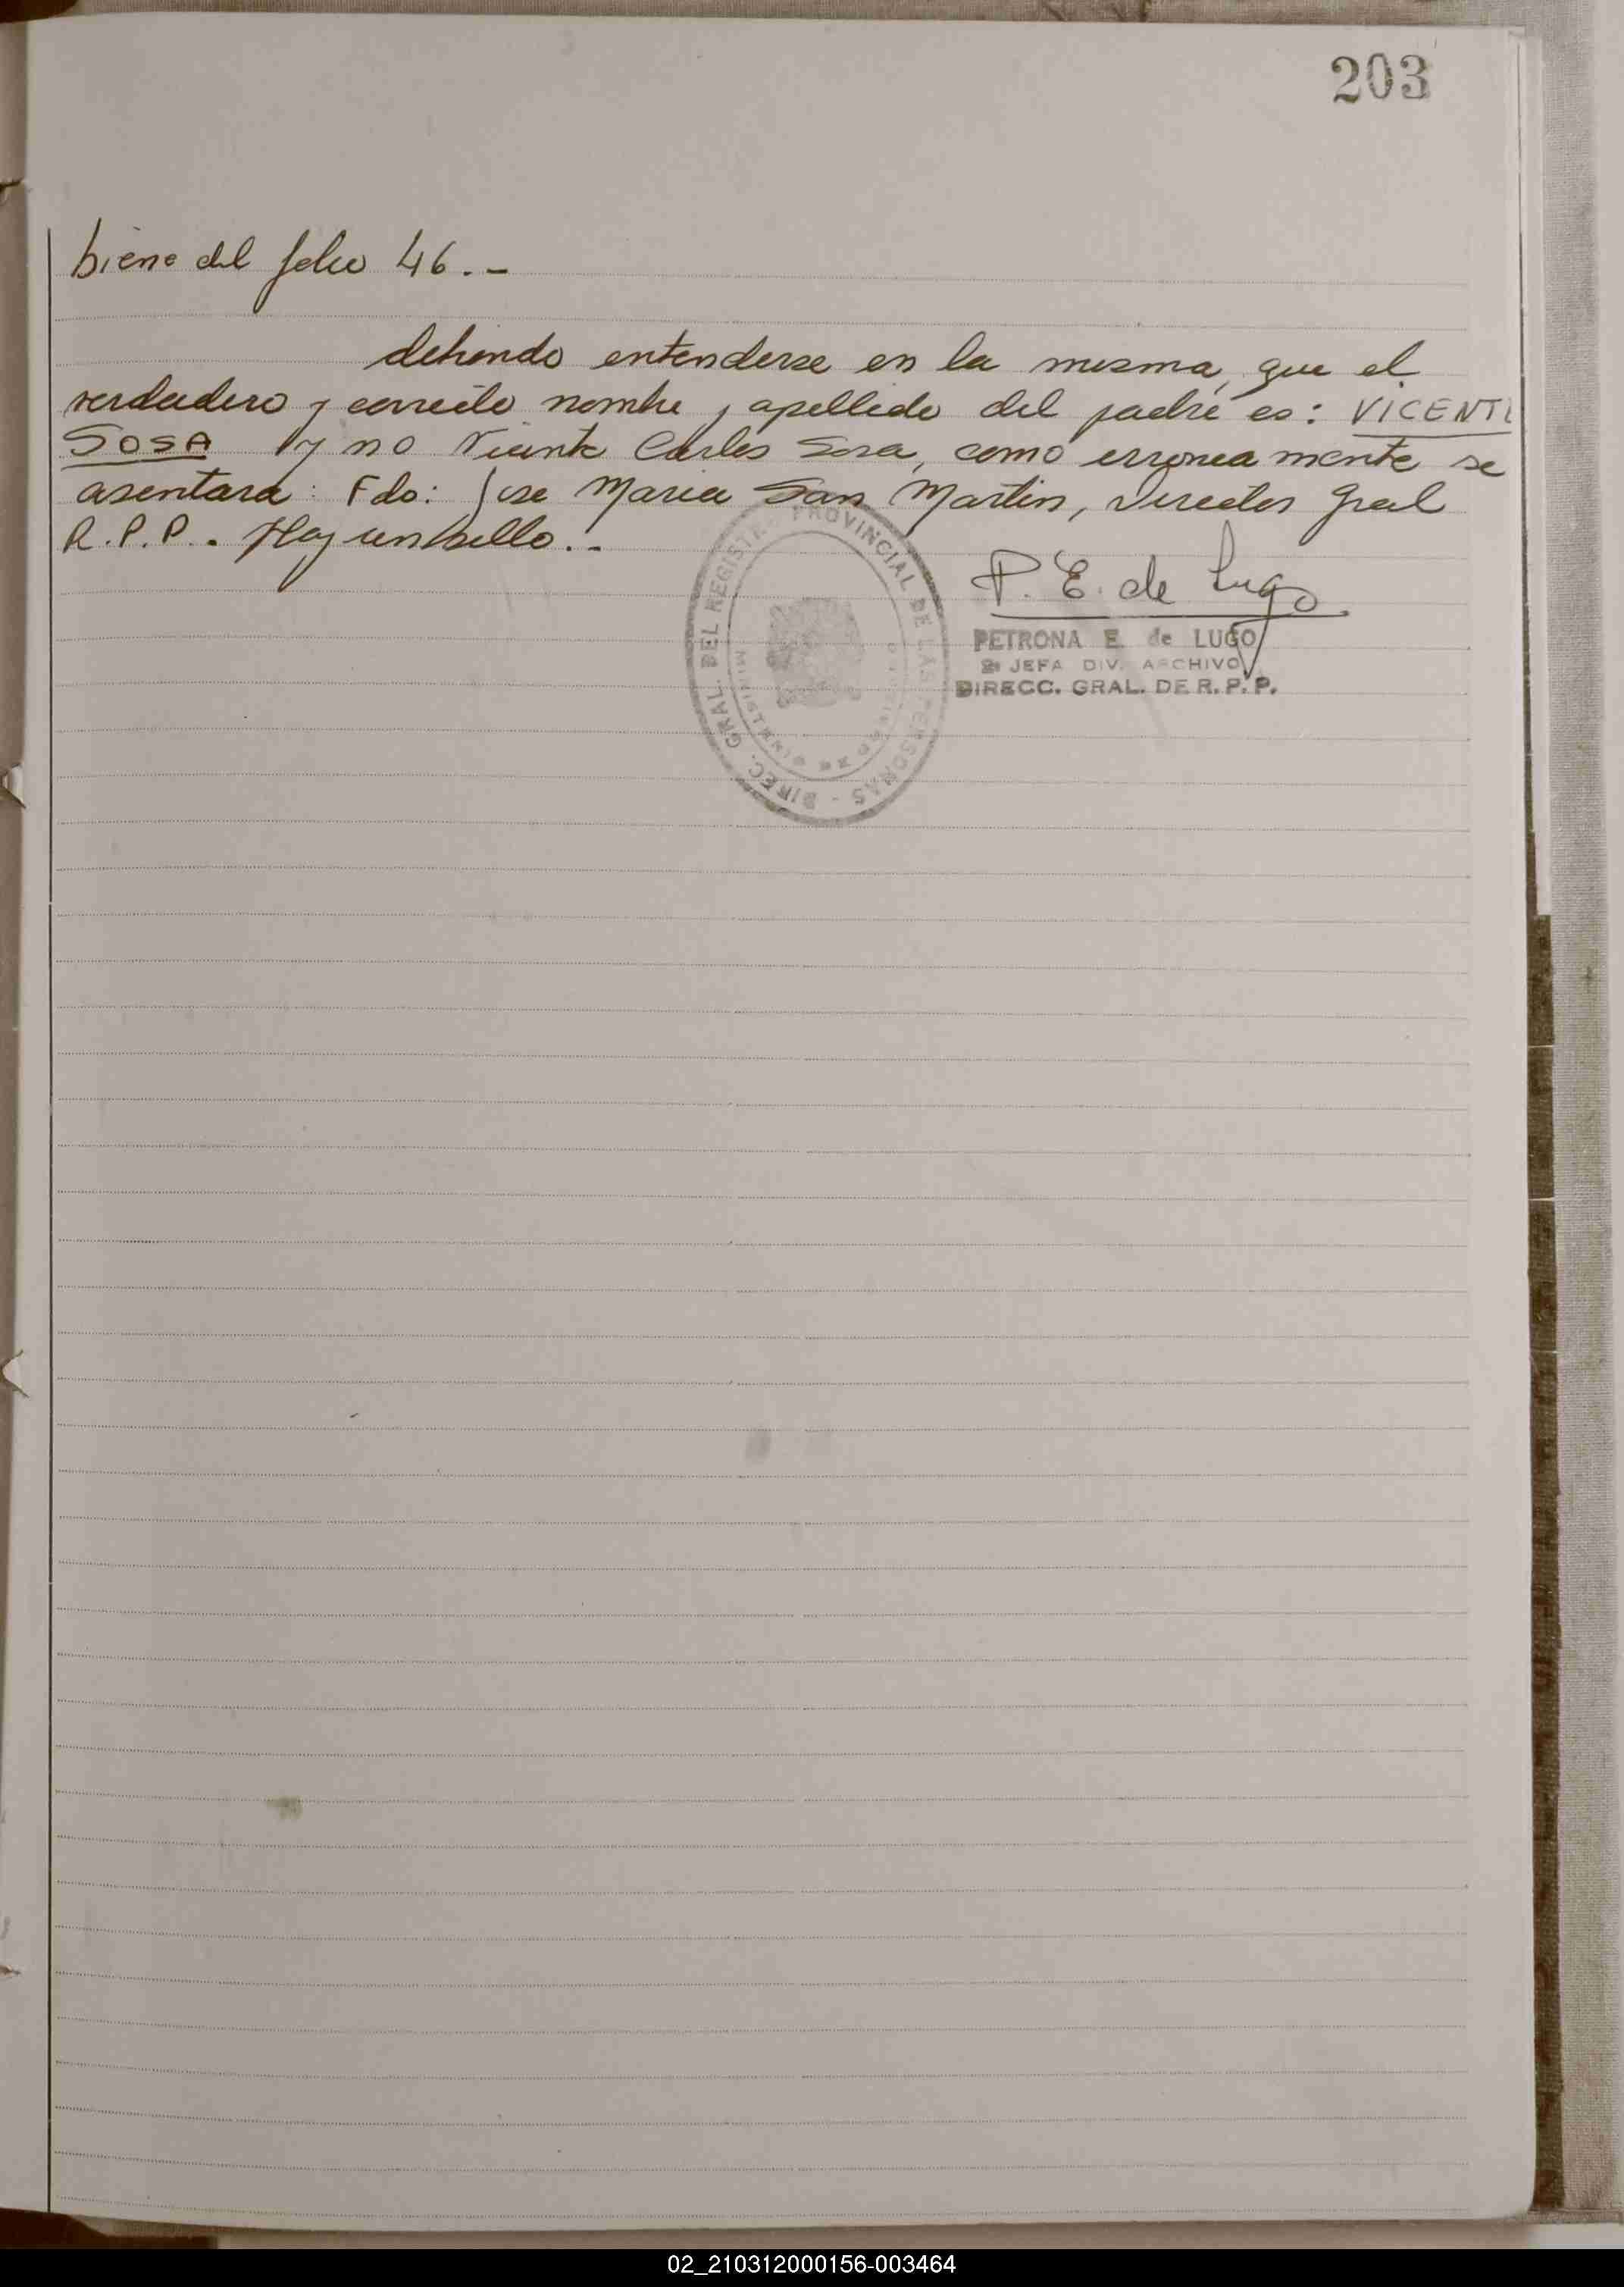 203
biene del folio 46.-
debiendo entenderse en la misma, que el
verdadero y correcto nombre y apellido del padre es: VICENTE
SOSA y no Vicente Carlos Sosa, como erronea mente se
asentara: Fdo: Jose Maria San Martin, Director Gral
R.P.P. Hay un sello.-
P. E. de Lugo
PETRONA E. de LUGO
JEFA DIV. ARCHIVO
DIRECC. GRAL. DE R.P.P.
DIREC. GRAL. DEL REGISTRO PROVINCIAL DE LAS PERSONAS
02_210312000156-003464